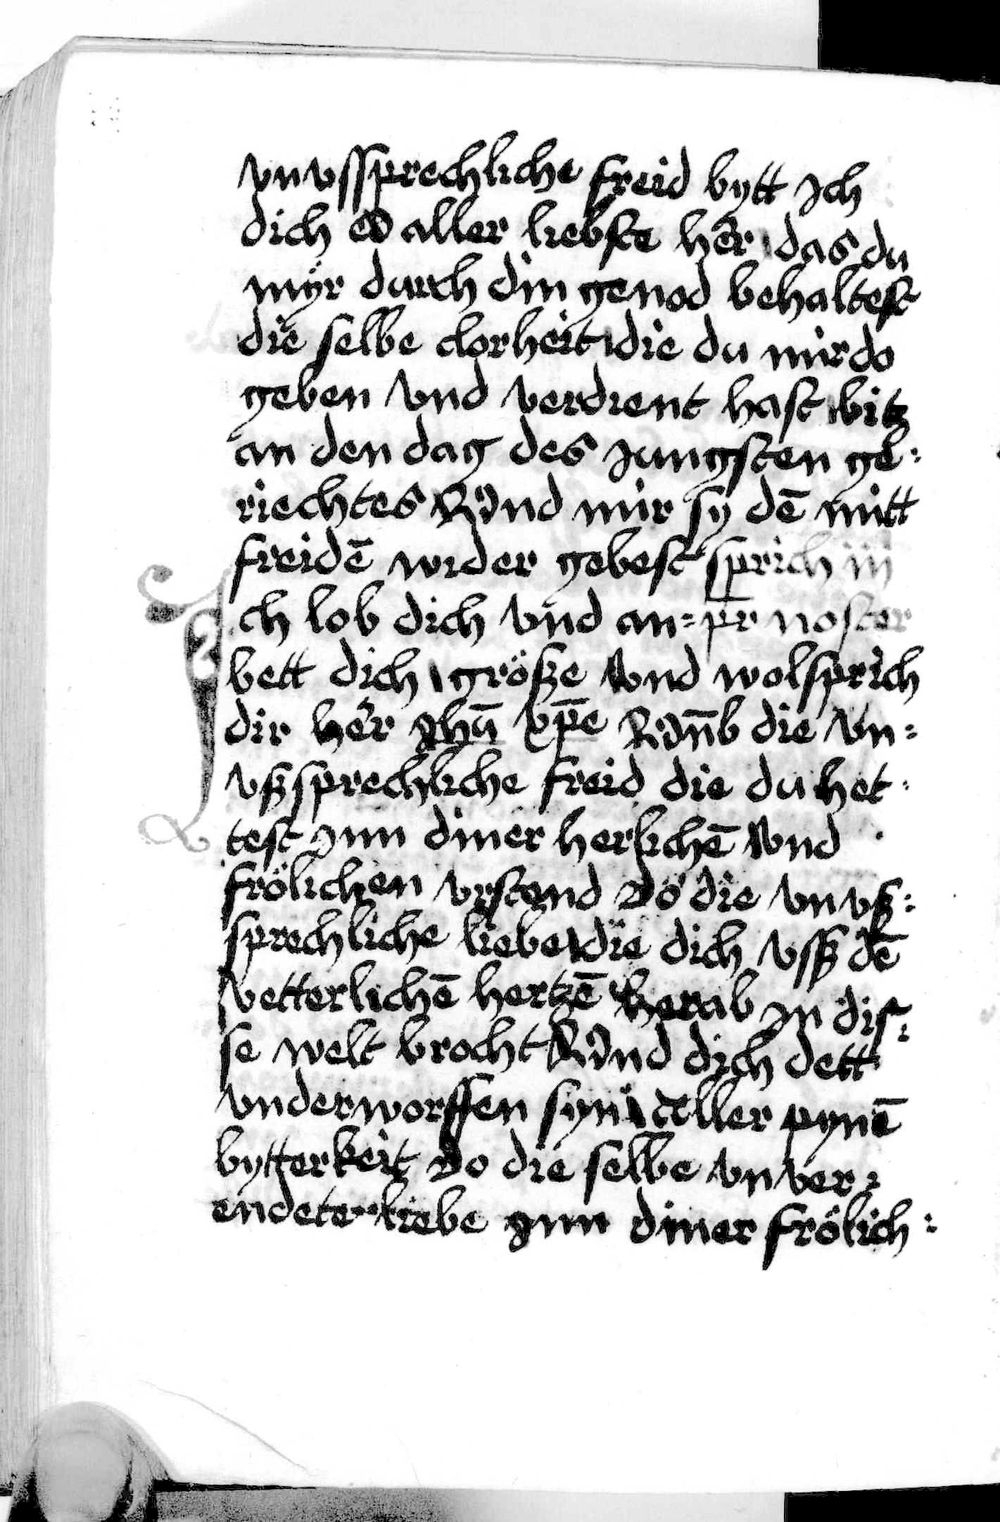 vnvssprechliche freid bytt ich
dich o aller liebste her das du
myr durch din genod behaltest
die selbe clorheit die du mir do
geben vnd verdient hast bitz
an den dag des jungsten ge-
riechtes vnd mir sy dē mitt
freidē wider gebest sprich iij
Ich lob dich vnd an= pr noster
bett dich größe vnd wolsprich
dir her jhū xpē vmb die vn=
vßsprechliche freid die du het-
test jnn diner herlichē vnd
frölichen vrstend Do die vnvß=
sprechliche liebe die dich vssß dē
vetterlichē hertzē herab jn dis=
se welt brocht vnd dich dett
vnderworffen syn aller pynē
bytterkeit Do die selbe vnver=
endete liebe jnn diner frölich=